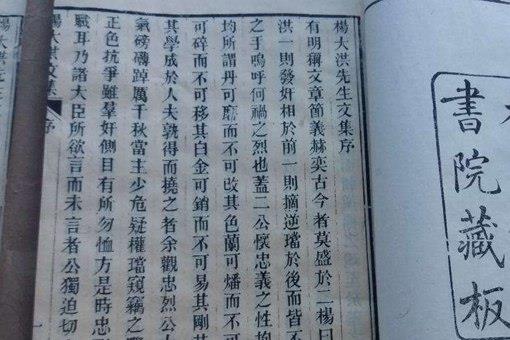 書院藏板
楊大洪先生文集序
有明稱文章節義赫奕古今者莫盛於二楊曰
洪一則發奸相於前一則摘逆璫於後而皆不
之于嗚呼何禍之烈也蓋二公懷忠義之性抱
均所謂丹可磨而不可改其色蘭可燔而不可
可碎而不可移其白金可銷而不可易其剛其
其學成於人夫孰得而撓之者余觀忠烈公人
氣磅礴踔厲千秋當主少危疑權璫窺竊之
正色抗爭雖羣奸側目有所勿恤方是時忠
耳乃諸大臣所欲言而未言者公獨迫切
楊大洪文集 序 一
楊大洪先生